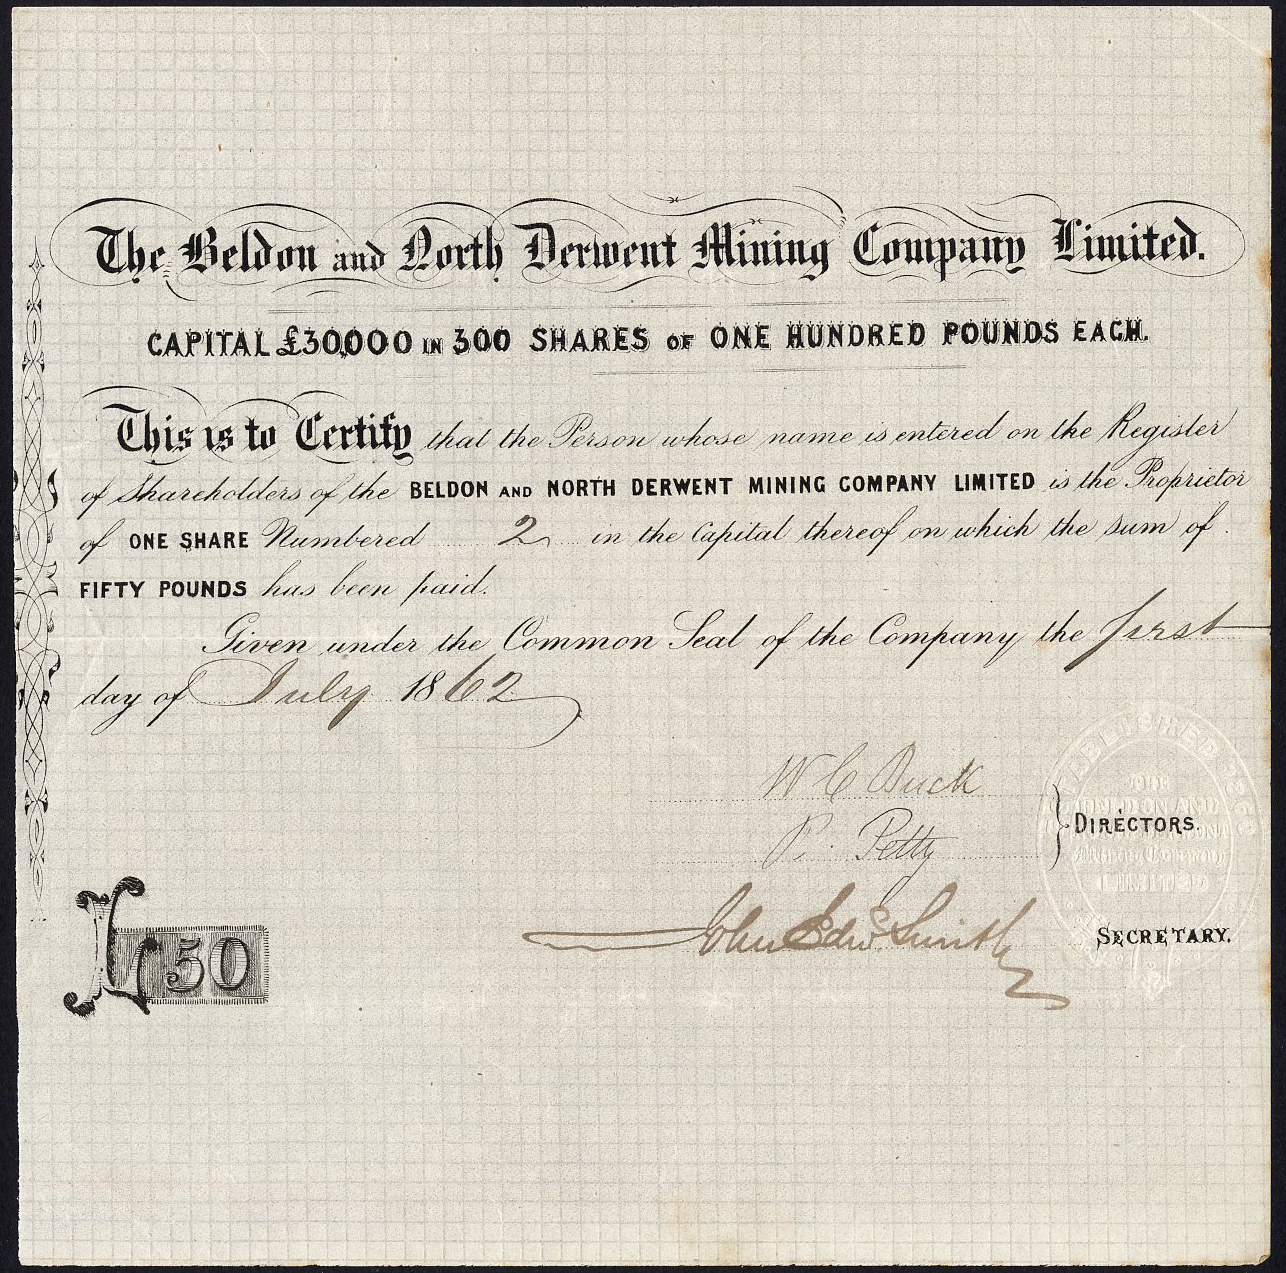 The Beldon and North Derwent Mining Company Limited.
CAPITAL £30,000 IN 300 SHARES OF ONE HUNDRED POUNDS EACH.
This is to Certify that the Person whose name is entered on the Register
of Shareholders of the BELDON AND NORTH DERWENT MINING COMPANY LIMITED is the Proprietor
of ONE SHARE Numbered 2 in the Capital thereof on which the sum of
FIFTY POUNDS has been paid.
Given under the Common Seal of the Company the first
day of July 1862
W C Buck
P. Petty
DIRECTORS.
John Edwd Smith
SECRETARY.
£50
ESTABLISHED 1862
THE
BELDON AND
NORTH DERWENT
Mining Company
LIMITED